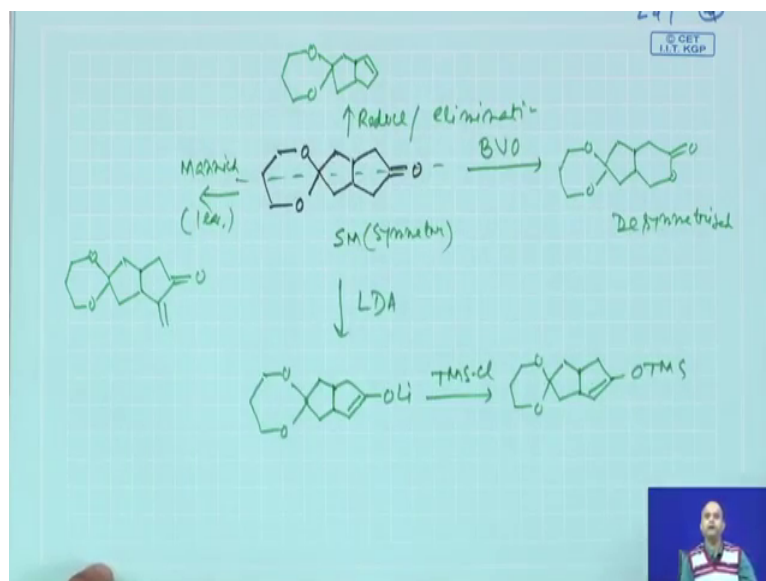 © CET
I.I.T. KGP
O
O
↑Reduce/ eliminati-
Mannich
(1eq.)
O
O
O
BVO
O
O
O
O
SM(Symmetric)
Desymmetrised
O
O
O
↓ LDA
O
O
OLi
TMS-Cl
O
O
OTMS